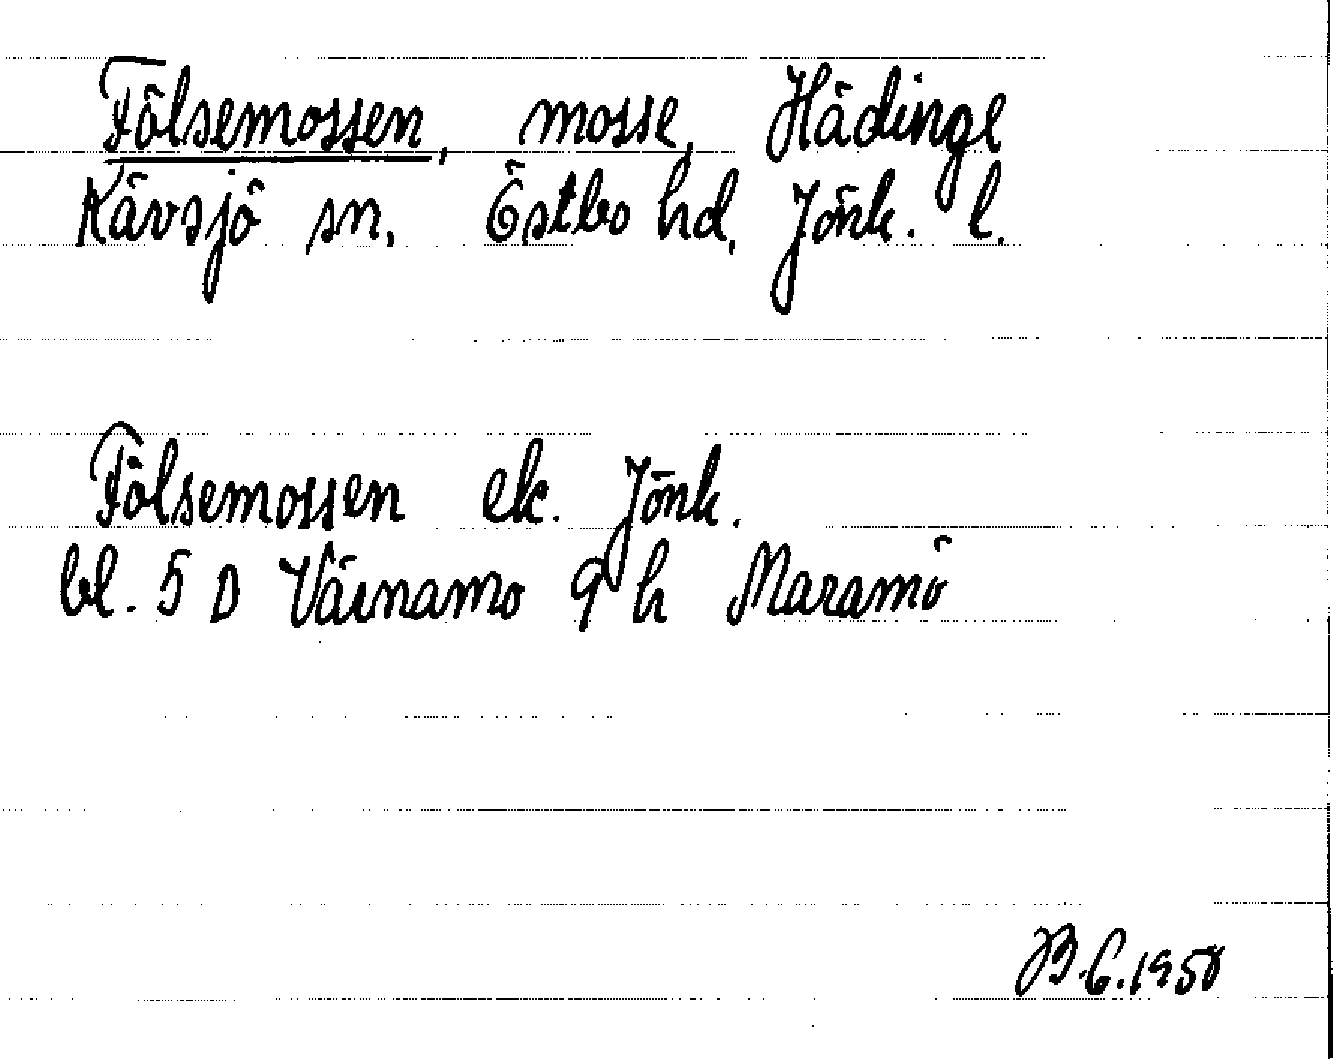 Fölsemossen, mosse, Hädinge
Kävsjö sn. Östbo hd, Jönk. l.
Fölsemossen ek. Jönk.
bl. 5 D Värnamo 9 h Maramö
B.C. 1958